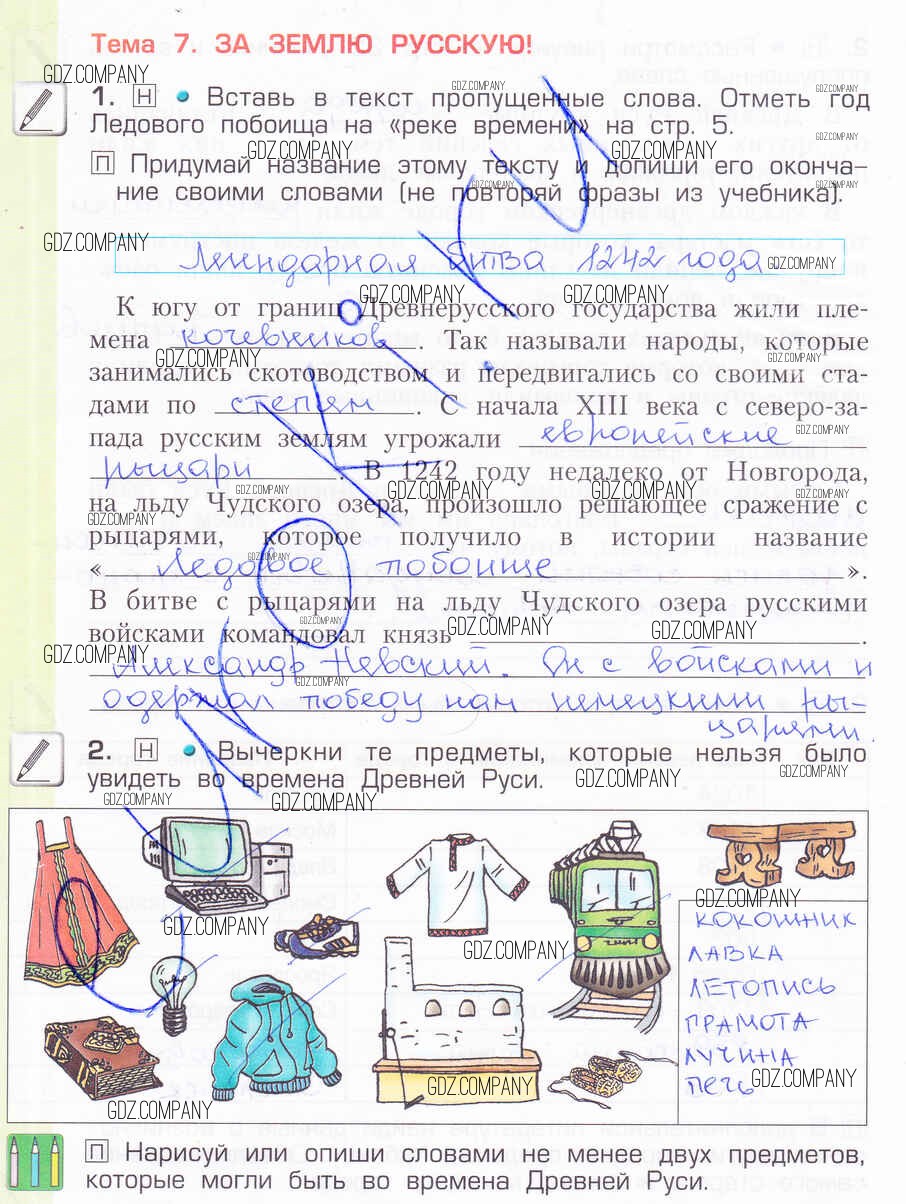 Тема 7. ЗА ЗЕМЛЮ РУССКУЮ!
GDZ.COMPANY
1. Н • Вставь в текст пропущенные слова. Отметь год
Ледового побоища на «реке времени» на стр. 5.
П Придумай название этому тексту и допиши его оконча-
ние своими словами (не повторяй фразы из учебника).
Легендарная битва 1242 года
К югу от границ Древнерусского государства жили пле-
мена кочевников. Так называли народы, которые
занимались скотоводством и передвигались со своими ста-
дами по степям. С начала XIII века с северо-за-
пада русским землям угрожали европейские
рыцари. В 1242 году недалеко от Новгорода,
на льду Чудского озера, произошло решающее сражение с
рыцарями, которое получило в истории название
« Ледовое побоище ».
В битве с рыцарями на льду Чудского озера русскими
войсками командовал князь .
Александр Невский. Он с войсками и
одержал победу нан немецкими ры-
царями
2. Н • Вычеркни те предметы, которые нельзя было
увидеть во времена Древней Руси.
КОКОШНИК
ЛАВКА
ЛЕТОПИСЬ
ГРАМОТА
ЛУЧИНА
ПЕЧЬ
П Нарисуй или опиши словами не менее двух предметов,
которые могли быть во времена Древней Руси.